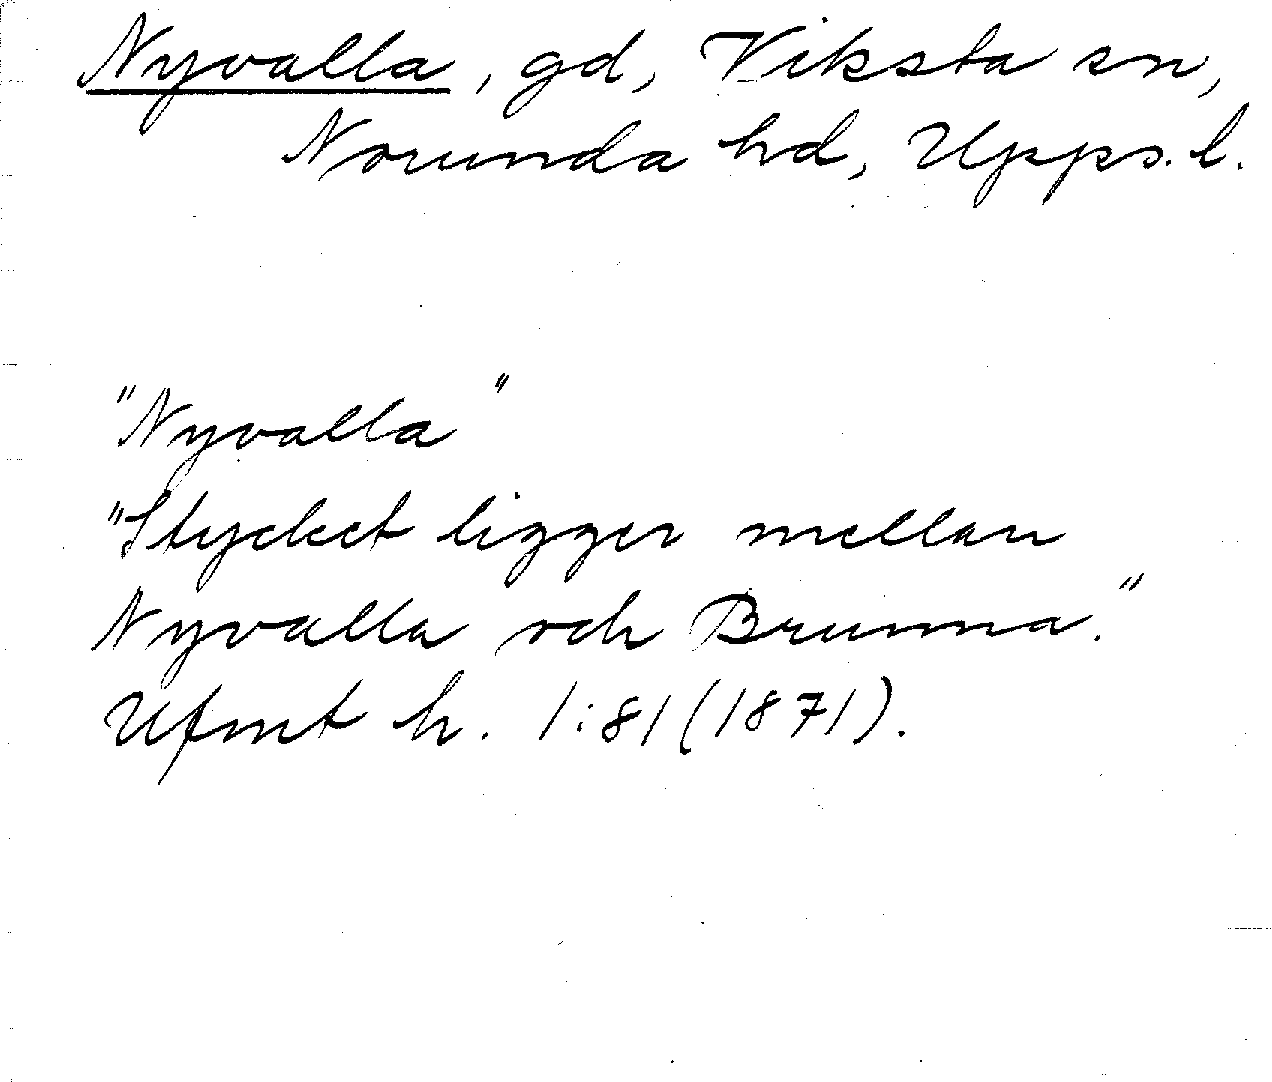 Nyvalla, gd, Viksta sn,
Norunda hd, Upps. l.
"Nyvalla"
"Stycket ligger mellan
Nyvalla och Brunna."
Ufmt h. 1:81 (1871).